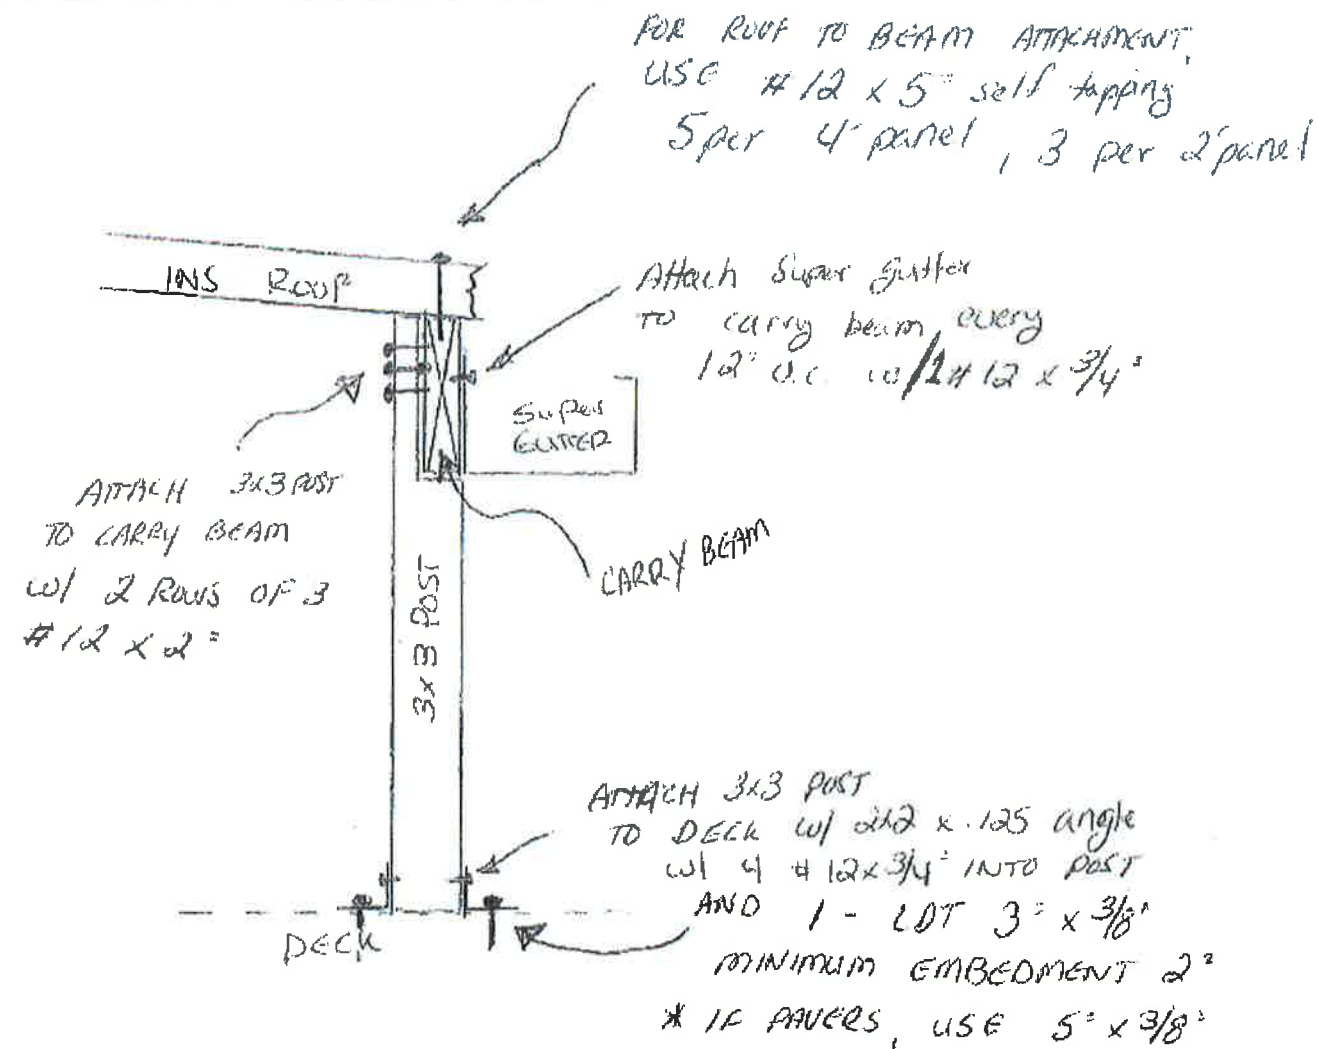 FOR ROOF TO BEAM ATTACHMENT,
USE #12 x 5" self tapping
5 per 4' panel, 3 per 2' panel
INS ROOF
Attach Super gutter
TO carry beam every
12" o.c. w/1 #12 x 3/4"
Super
GUTTER
ATTACH 3x3 POST
TO CARRY BEAM
w/ 2 ROWS OF 3
#12 x 2"
CARRY BEAM
3x3 POST
ATTACH 3x3 POST
TO DECK w/ 2x2 x .125 angle
w/ 4 #12 x 3/4" INTO POST
AND 1 - LDT 3" x 3/8"
MINIMUM EMBEDMENT 2"
* IF PAVERS, USE 5" x 3/8"
DECK